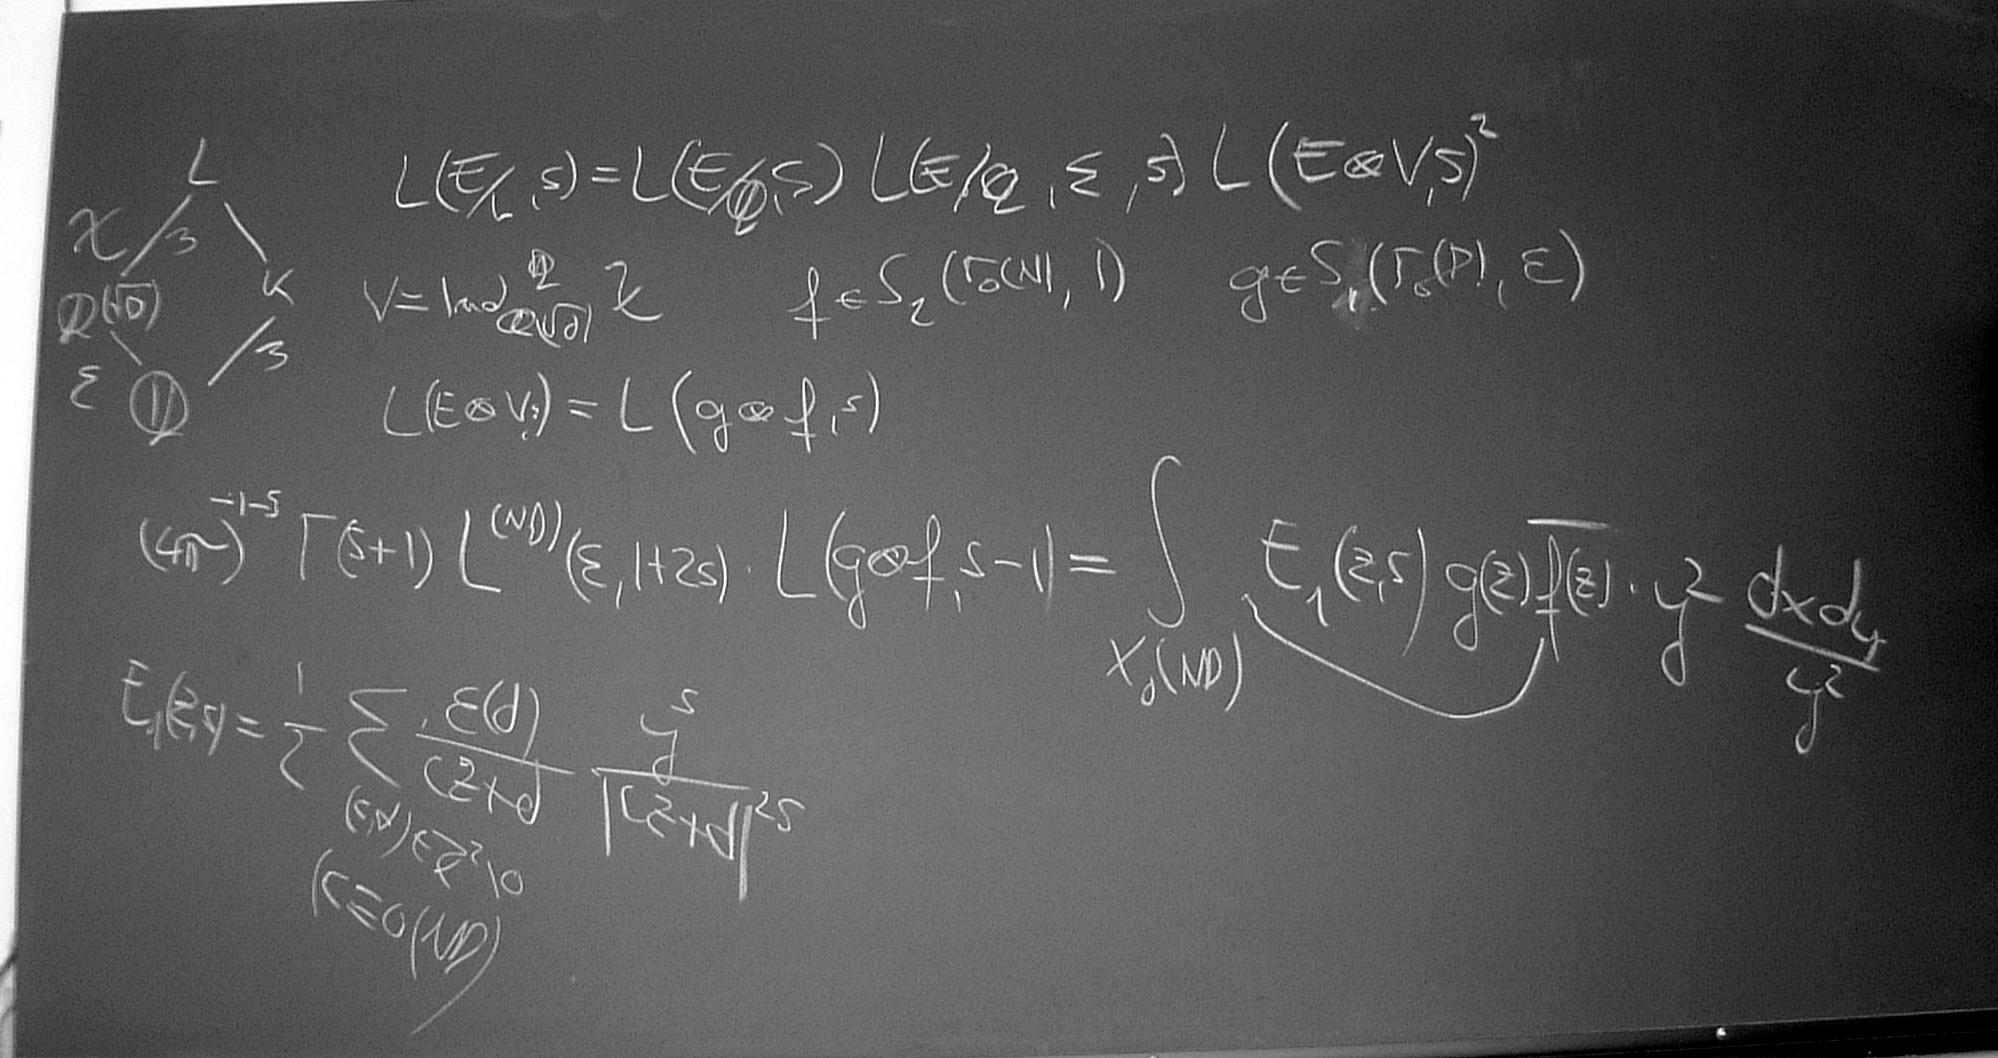 L
χ / 3 \
Q(√D) K
\ / 3
ε Q
L(E/L, s) = L(E/Q, s) L(E/Q, ε, s) L(E⊗V, s)²
V = Ind_{Q(√D)}^{Q} χ f ∈ S₂(Γ₀(N), 1) g ∈ S₁(Γ₀(D), ε)
L(E⊗V, s) = L(g⊗f, s)
(4π)^{-1-s} Γ(s+1) L^{(ND)}(ε, 1+2s) · L(g⊗f, s-1) = ∫_{X₀(ND)} E₁(z,s) g(z) \overline{f(z)} · y² \frac{dxdy}{y²}
E₁(z,s) = \frac{1}{2} Σ_{(c,d)∈Z²\0 (c≡0(ND))} \frac{ε(d)}{cz+d} \frac{y^s}{|cz+d|^{2s}}